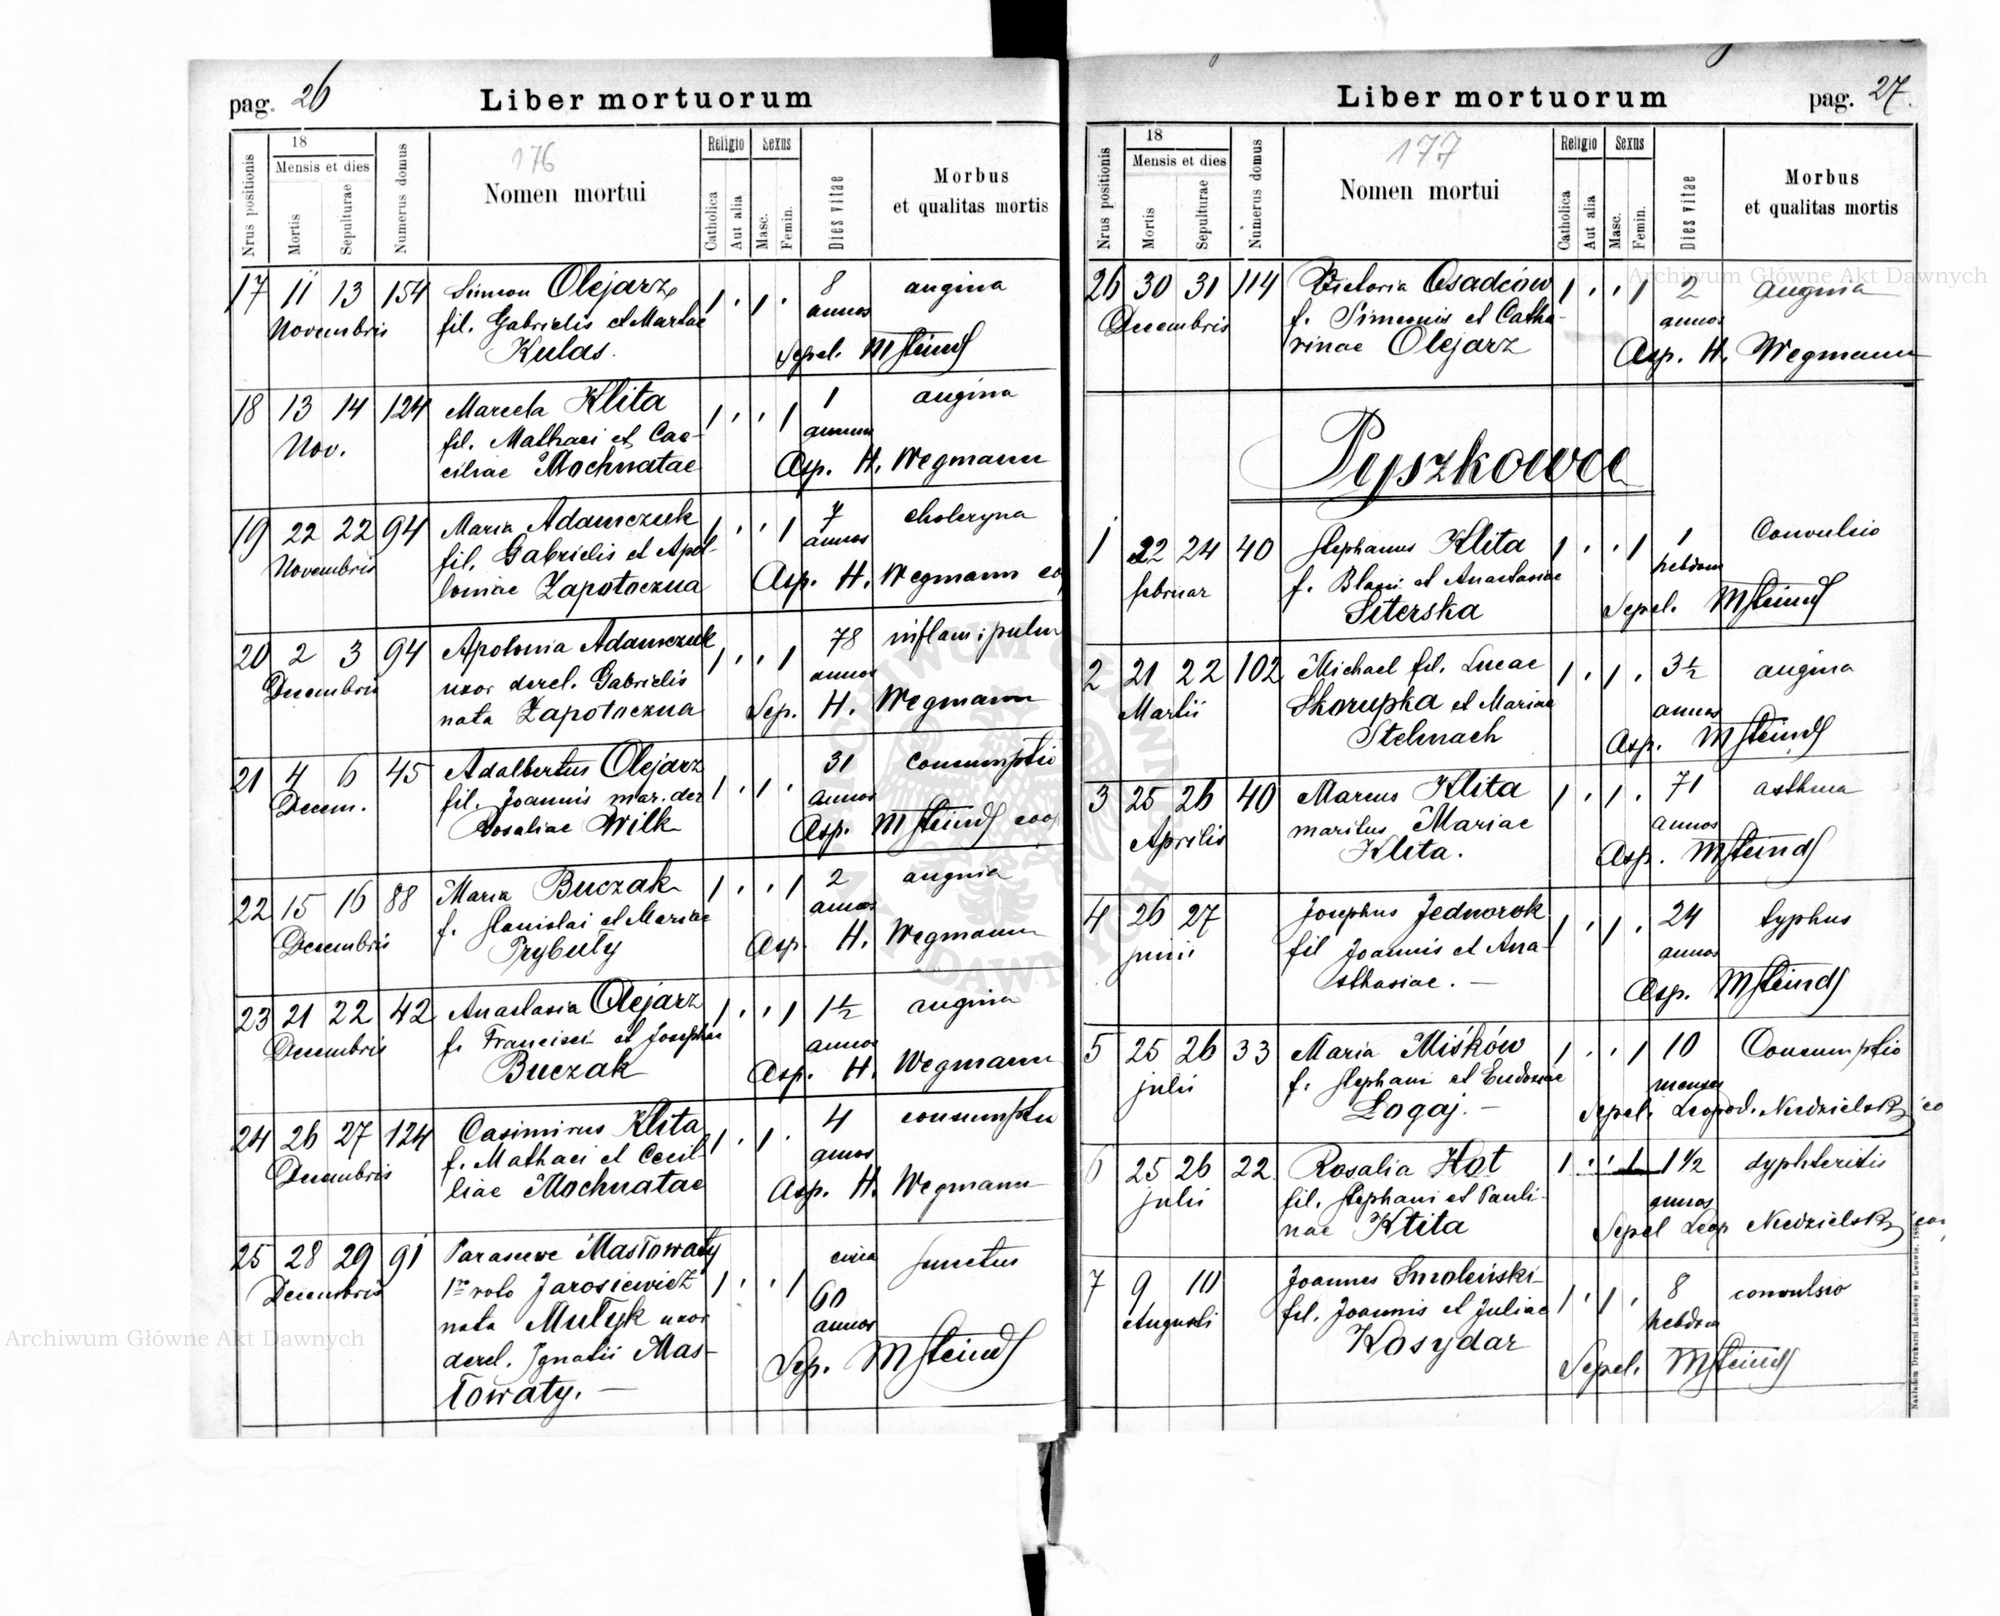 pag. 26
Liber mortuorum
Nrus positionis
18
Mensis et dies
Mortis
Sepulturae
Numerus domus
176
Nomen mortui
Religio
Catholica
Aut alia
Sexus
Masc.
Femin.
Dies vitae
Morbus
et qualitas mortis
17 11 13 154 Simeon Olejarz 1 · 1 · 8 angina
Novembris fil. Gabrielis et Martae annos
Kulas. Sepel. MSteindl
18 13 14 124 Marcela Klita 1 · · 1 1 angina
Nov. fil. Mathaei et Cae- annum
ciliae Mochnatae Asp. H. Wegmann
19 22 22 94 Maria Adamczuk 1 · · 1 7 choleryna
Novembris fil. Gabrielis et Apol- annos
loniae Zapotoczna Asp. H. Wegmann
20 2 3 94 Apolonia Adamczuk 1 · · 1 78 inflam. pulm
Decembris uxor derel. Gabrielis annos
nata Zapotoczna Sep. H. Wegmann
21 4 6 45 Adalbertus Olejarz 1 · 1 · 31 consumptio
Decem. fil. Joannis mar. der annos
Rosaliae Wilk Asp. MSteindl coo
22 15 16 88 Maria Buczak 1 · · 1 2 angina
Decembris f. Stanislai et Mariae annos
Prybuły Asp. H. Wegmann
23 21 22 42 Anastasia Olejarz 1 · · 1 1½ angina
Decembris f. Francisci et Josephae annos
Buczak Asp. H. Wegmann
24 26 27 124 Casimirus Klita 1 · 1 · 4 consumptio
Decembris f. Mathaei et Cecil- annos
liae Mochnatae Asp. H. Wegmann
25 28 29 91 Parascewe Masłowaty 1 · · 1 circa
Decembris 1ro voto Jarosiewicz 60
nata Mułyk uxor annos
derel. Ignatii Mas- Sep. MSteindl
łowaty. —
pag. 27.
Liber mortuorum
Nrus positionis
18
Mensis et dies
Mortis
Sepulturae
Numerus domus
177
Nomen mortui
Religio
Catholica
Aut alia
Sexus
Masc.
Femin.
Dies vitae
Morbus
et qualitas mortis
26 30 31 114 Victoria Osadców 1 · · 1 2 angina
Decembris f. Simeonis et Catha- annos
rinae Olejarz Asp. H. Wegmann
Pyszkowce
1 22 24 40 Stephanus Klita 1 · · 1 1 Convulsio
februar f. Blasii et Anastasiae hebdom
Siterska Sepel. MSteindl
2 21 22 102 Michael fil. Lucae 1 · 1 · 3½ angina
Martii Skorupka et Mariae annos
Stelmach Asp. MSteindl
3 25 26 40 Marcus Klita 1 · 1 · 71 asthma
Aprilis maritus Mariae annos
Klita. Asp. MSteindl
4 26 27 Josephus Jednorok 1 · 1 · 24 typhus
junii fil Joannis et Ana- annos
sthasiae. — Asp. MSteindl
5 25 26 33 Maria Miśków 1 · · 1 10 Consumptio
julii f. Stephani et Eudoxiae menses
Łogaj. — Sepel. Leopod. Niedzielski co
6 25 26 22 Rosalia Hot 1 · · 1 1½ dyphteritis
julii fil. Stephani et Pauli- annos
nae Klita Sepel Leop Niedzielski coo
7 9 10 Joannes Smoleński 1 · 1 · 8 convulsio
Augusti fil. Joannis et Juliae hebdom
Kosydar Sepel. MSteindl
Nakładem Drukarni Ludowej we Lwowie.
Archiwum Główne Akt Dawnych
Archiwum Główne Akt Dawnych